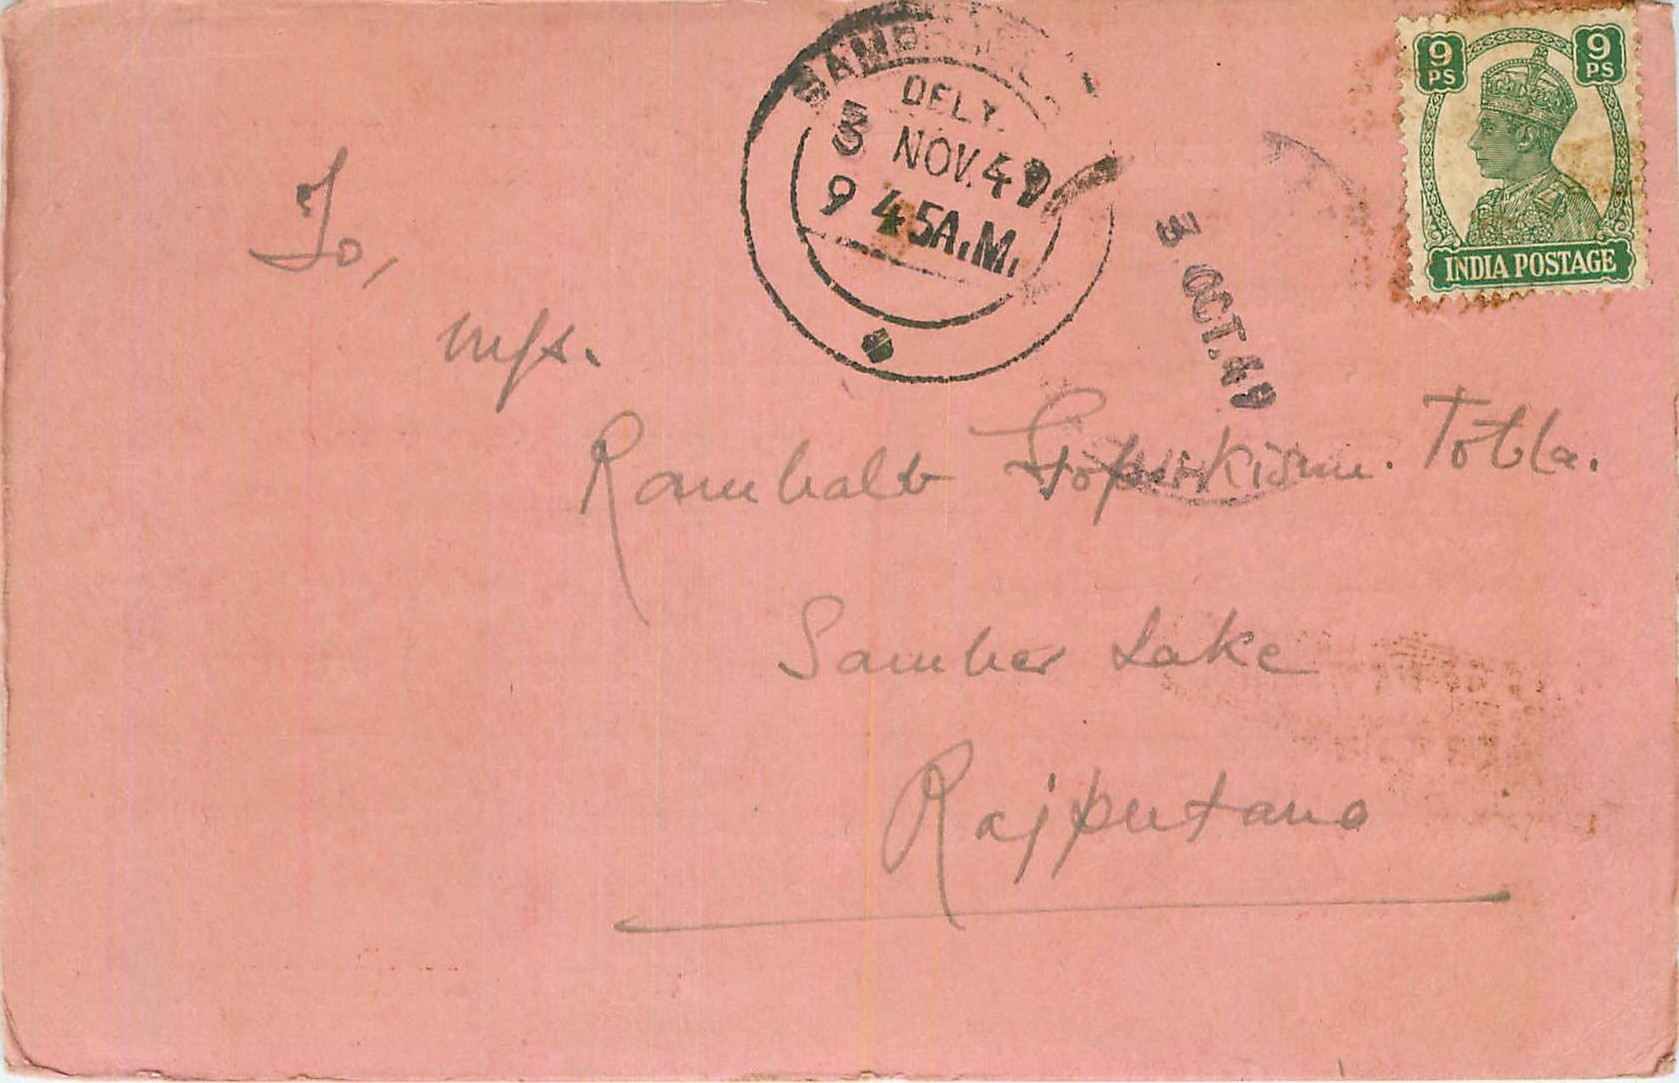 9 PS 9 PS
INDIA POSTAGE
DELY.
3 NOV. 49
9 45 A.M.
3 OCT. 49
To,
M/s.
Rambalb Gopikisan. Totla.
Samber Lake
Rajputana